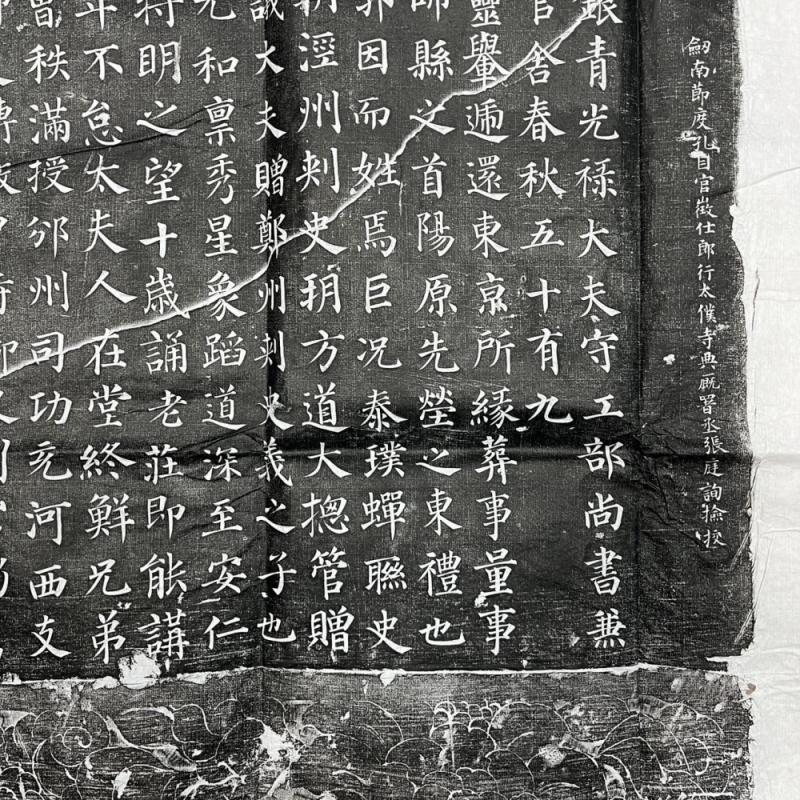 劒南節度孔目官徵仕郎行太僕寺典廄署丞張庭詢撿挍
銀青光祿大夫守工部尚書兼
官舍春秋五十有九
靈轝遞還東京所緣葬事量事
師縣之首陽原先塋之東禮也
郭因而姓焉巨况泰璞蟬聯史
朝涇州刾史玥方道大揔管贈
議大夫贈鄭州刾史義之子也
元和禀秀星象蹈道深至安仁
特明之望十歲誦老莊即能講
不怠太夫人在堂終鮮兄弟
曾秩滿授邠州司功充河西支